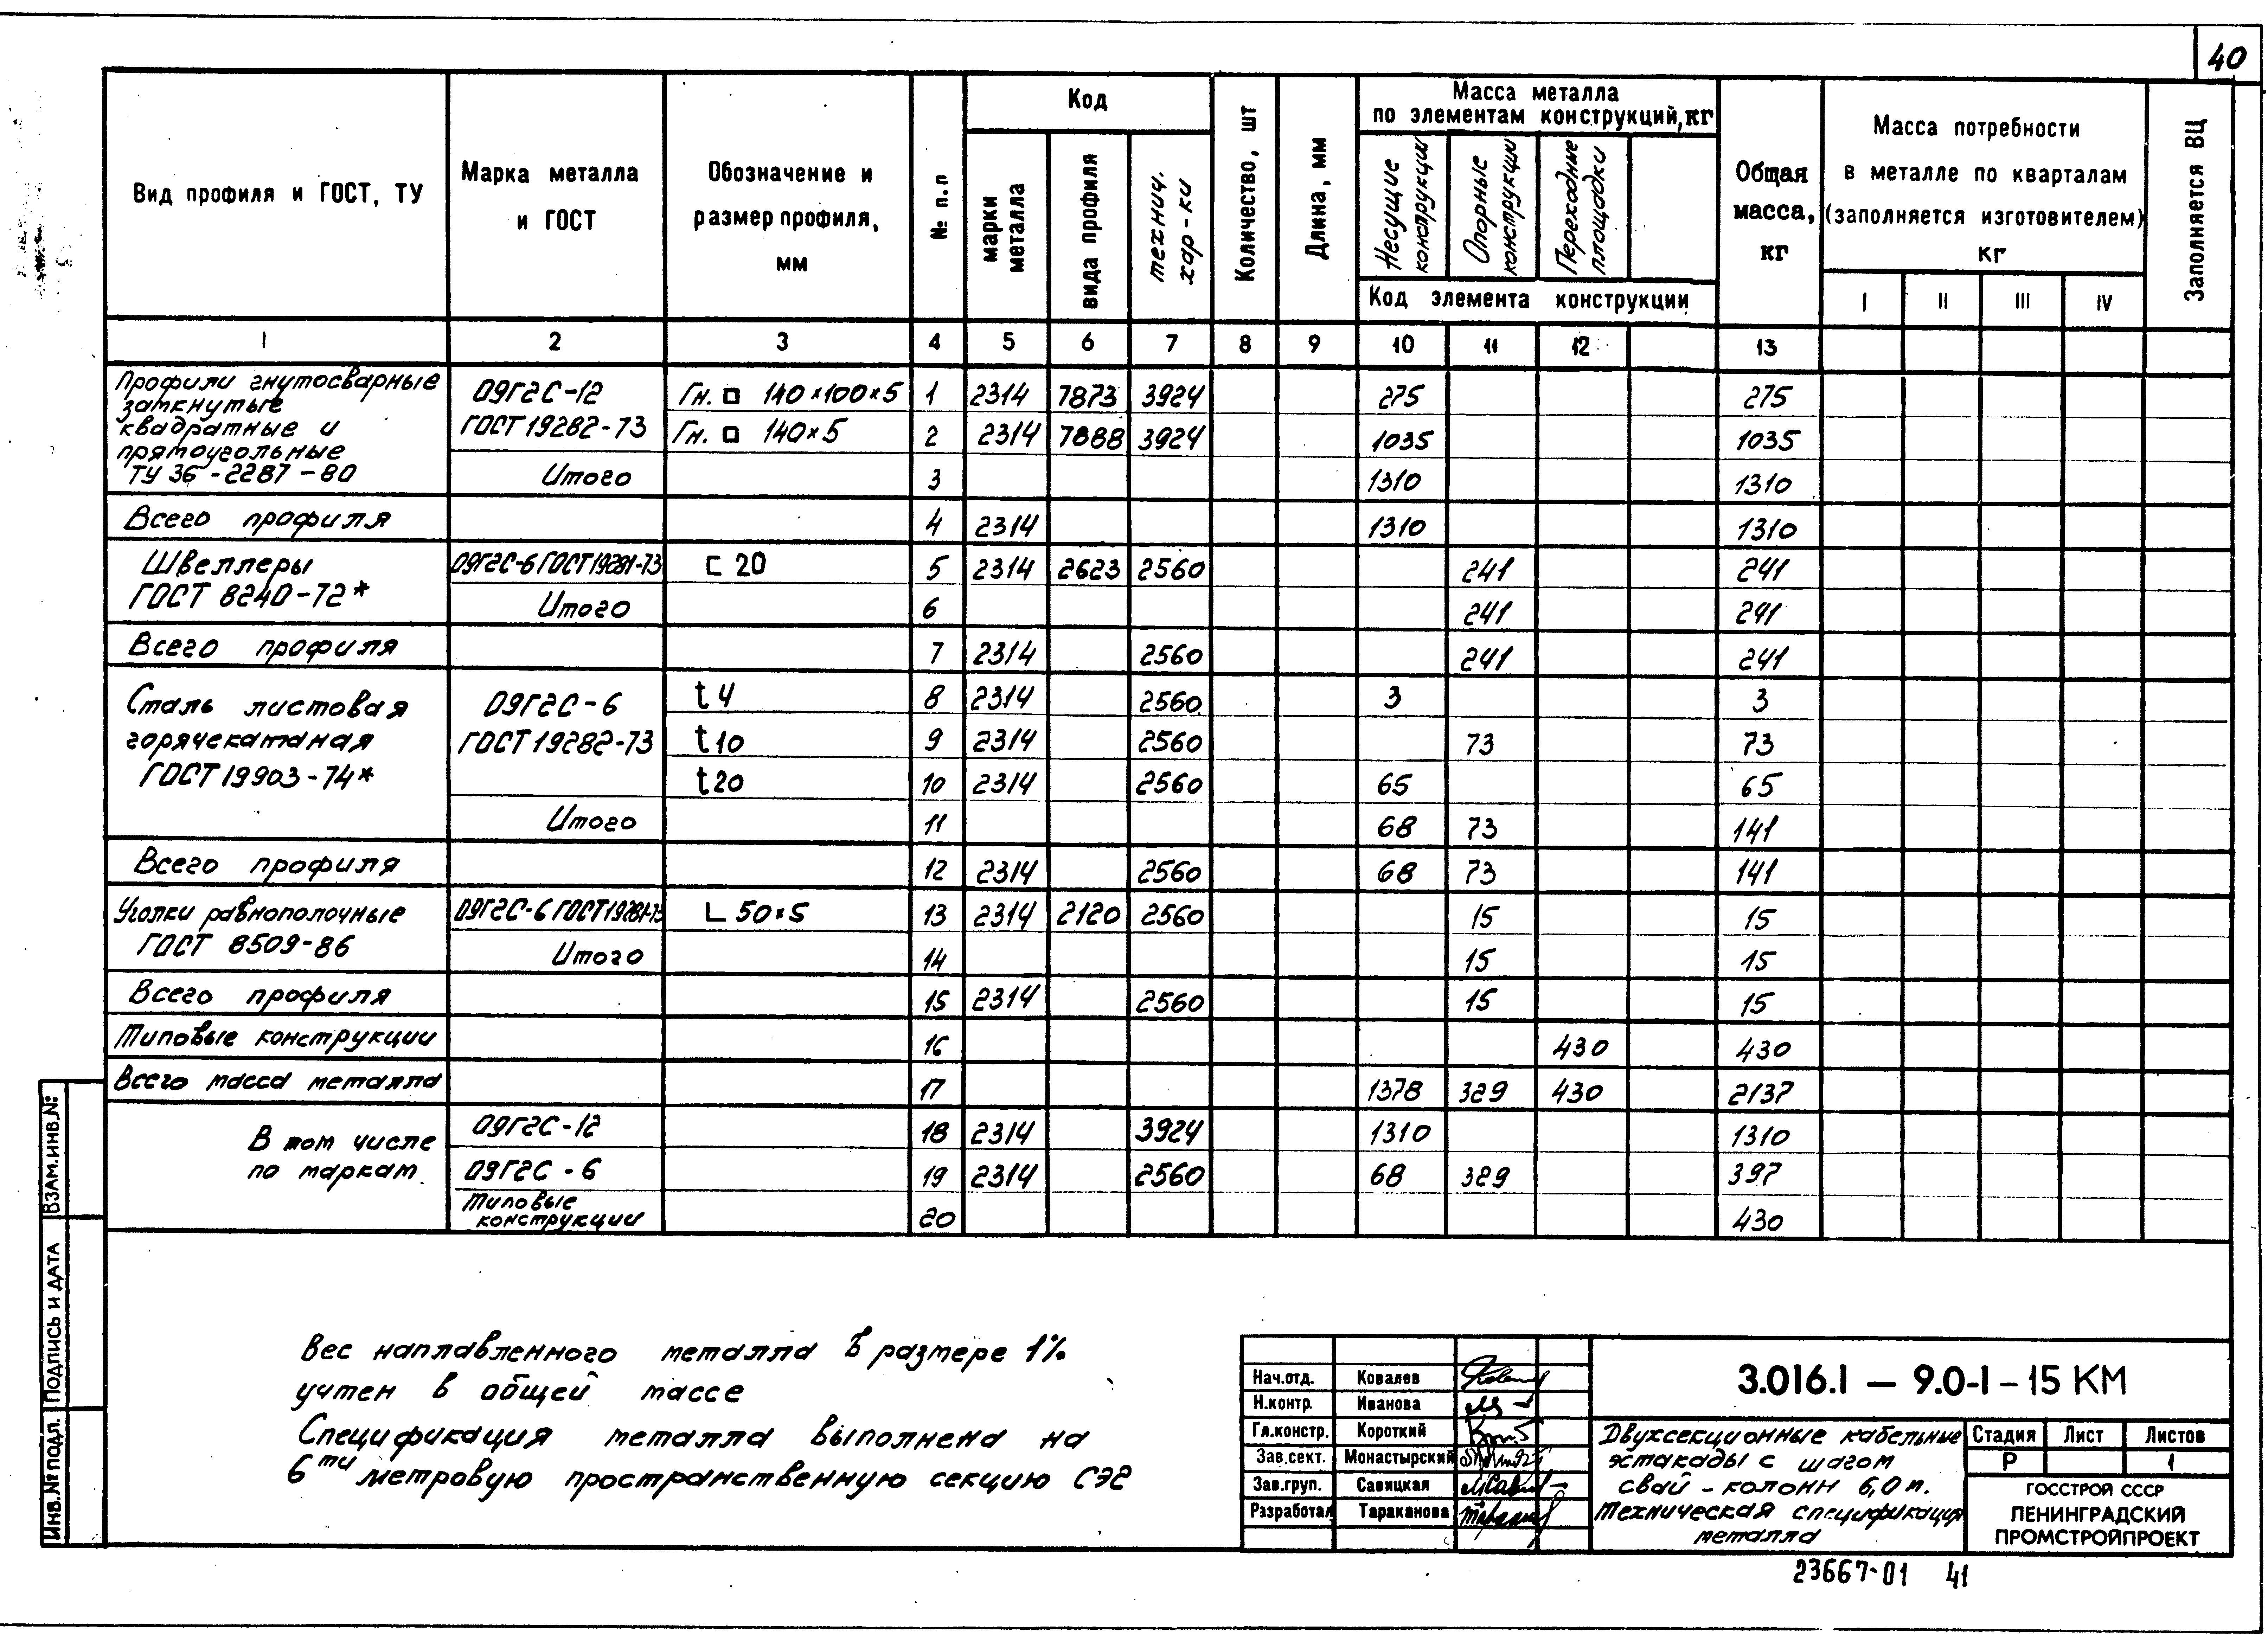 40
Вид профиля и ГОСТ, ТУ
Марка металла
и ГОСТ
Обозначение и
размер профиля,
мм
№ п.п
Код
марки
металла
вида профиля
технич.
хар-ки
Количество, шт
Длина, мм
Масса металла
по элементам конструкций, кг
Несущие
конструкции
Опорные
конструкции
Переходные
площадки
Код элемента конструкции
Общая
масса,
кг
Масса потребности
в металле по кварталам
(заполняется изготовителем)
кг
I II III IV
Заполняется ВЦ
1 2 3 4 5 6 7 8 9 10 11 12 13
Профили гнутосварные
замкнутые
квадратные и
прямоугольные
ТУ 36-2287-80
09Г2С-12
ГОСТ 19282-73
Гн. □ 140×100×5 1 2314 7873 3924 275 275
Гн. □ 140×5 2 2314 7888 3924 1035 1035
Итого 3 1310 1310
Всего профиля 4 2314 1310 1310
Швеллеры
ГОСТ 8240-72*
09Г2С-6 ГОСТ 19281-73 [ 20 5 2314 2623 2560 241 241
Итого 6 241 241
Всего профиля 7 2314 2560 241 241
Сталь листовая
горячекатаная
ГОСТ 19903-74*
09Г2С-6
ГОСТ 19282-73
t4 8 2314 2560 3 3
t10 9 2314 2560 73 73
t20 10 2314 2560 65 65
Итого 11 68 73 141
Всего профиля 12 2314 2560 68 73 141
Уголки равнополочные
ГОСТ 8509-86
09Г2С-6 ГОСТ 19281-73 L 50×5 13 2314 2120 2560 15 15
Итого 14 15 15
Всего профиля 15 2314 2560 15 15
Типовые конструкции 16 430 430
Всего масса металла 17 1378 329 430 2137
В том числе
по маркам
09Г2С-12 18 2314 3924 1310 1310
09Г2С-6 19 2314 2560 68 329 397
Типовые
конструкции 20 430
Вес наплавленного металла в размере 1%
учтен в общей массе
Спецификация металла выполнена на
6ти метровую пространственную секцию СЭ2
Взам.инв.№
Подпись и дата
Инв.№ подл.
Нач.отд. Ковалев
Н.контр. Иванова
Гл.констр. Короткий
Зав.сект. Монастырский
Зав.груп. Савицкая
Разработал Тараканова
3.016.1 — 9.0-1-15 КМ
Двухсекционные кабельные
эстакады с шагом
свай-колонн 6,0 м.
Техническая спецификация
металла
Стадия Лист Листов
Р 1
ГОССТРОЙ СССР
ЛЕНИНГРАДСКИЙ
ПРОМСТРОЙПРОЕКТ
23667-01 41